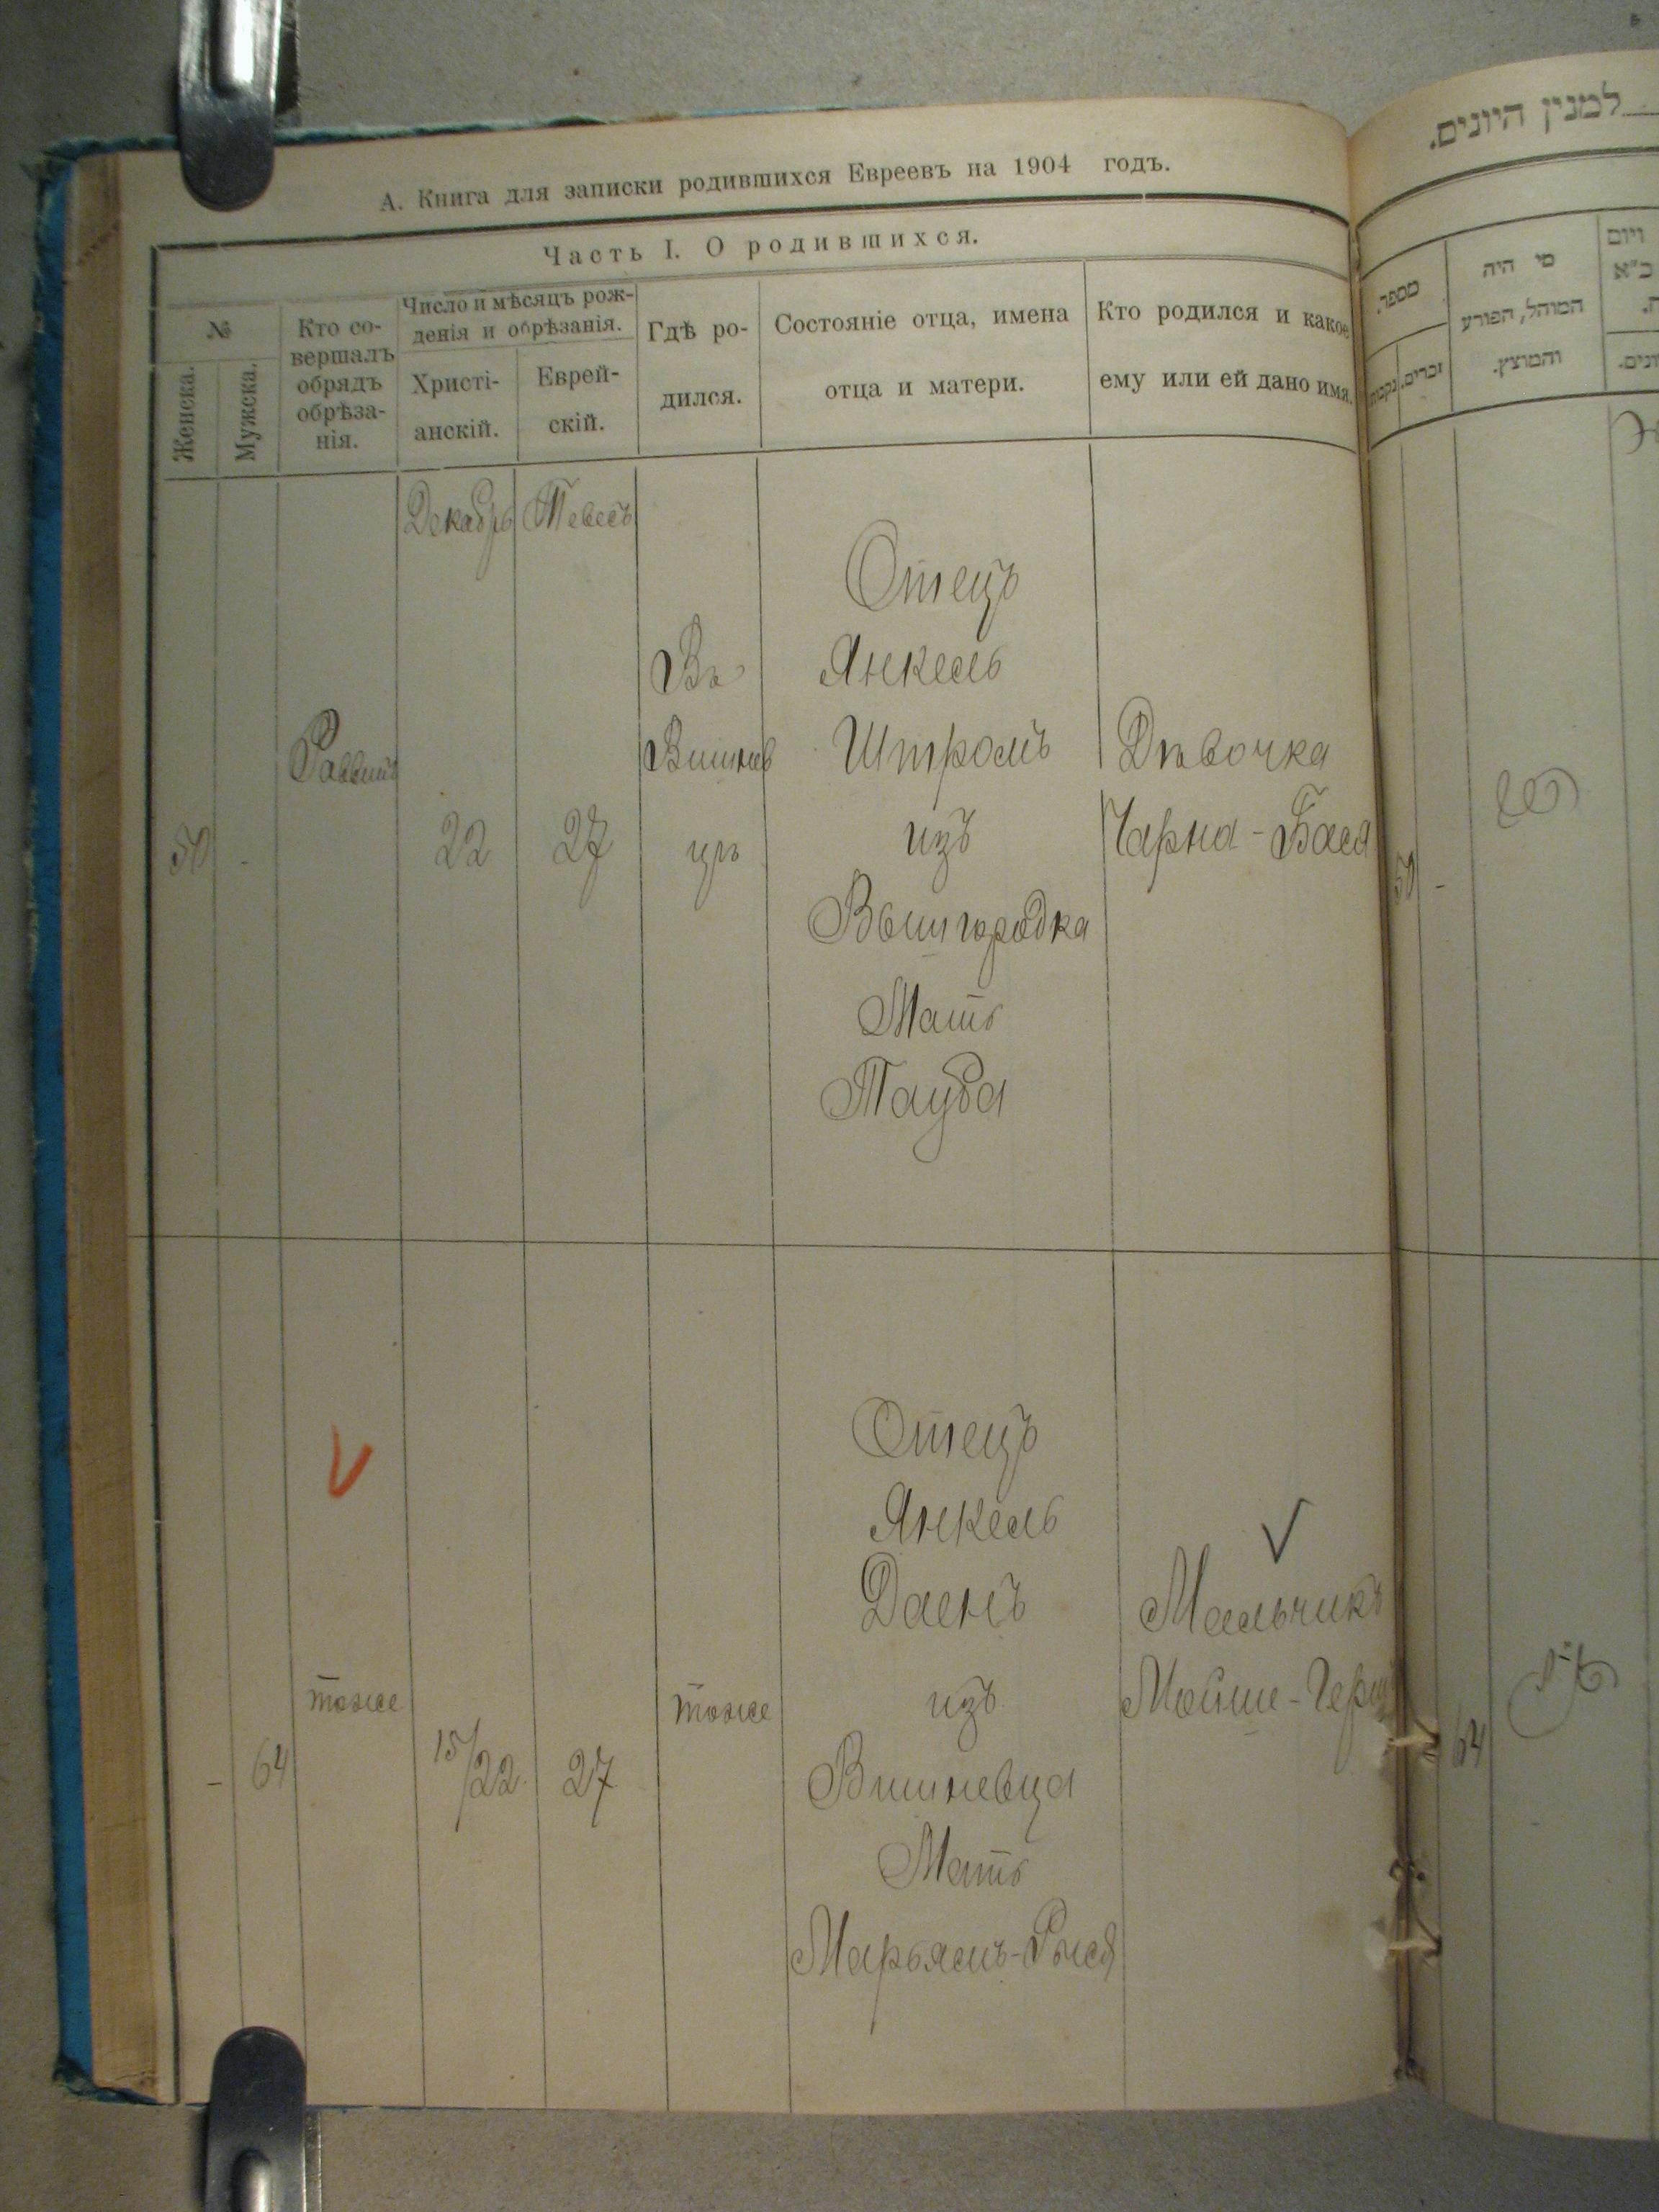 А. Книга для записки родившихся Евреевъ на 1904 годъ.
Часть I. О родившихся.
№
Женска.
Мужска.
Кто со-
вершалъ
обрядъ
обрѣза-
нія.
Число и мѣсяцъ рож-
денія и обрѣзанія.
Христі-
анскій.
Еврей-
скій.
Гдѣ ро-
дился.
Состояніе отца, имена
отца и матери.
Кто родился и какое
ему или ей дано имя.
Декабрь Тевесъ
50 -
Раввинъ
22
27
Въ
Вишнев
цѣ
Отецъ
Янкель
Штромъ
изъ
Вышгородка
Мать
Тауба
Дѣвочка
Чарна-Бася
- 64
тоже
15/22
27
тоже
Отецъ
Янкель
Даенъ
изъ
Вишневца
Мать
Марьямъ-Рыся
Мальчикъ
Мойше-Герш
למנין היונים.
מספר.
נקבות
זכרים.
מי היה
המוהל, הפורע
והמוצץ.
ויום
כ"א
50 -
64